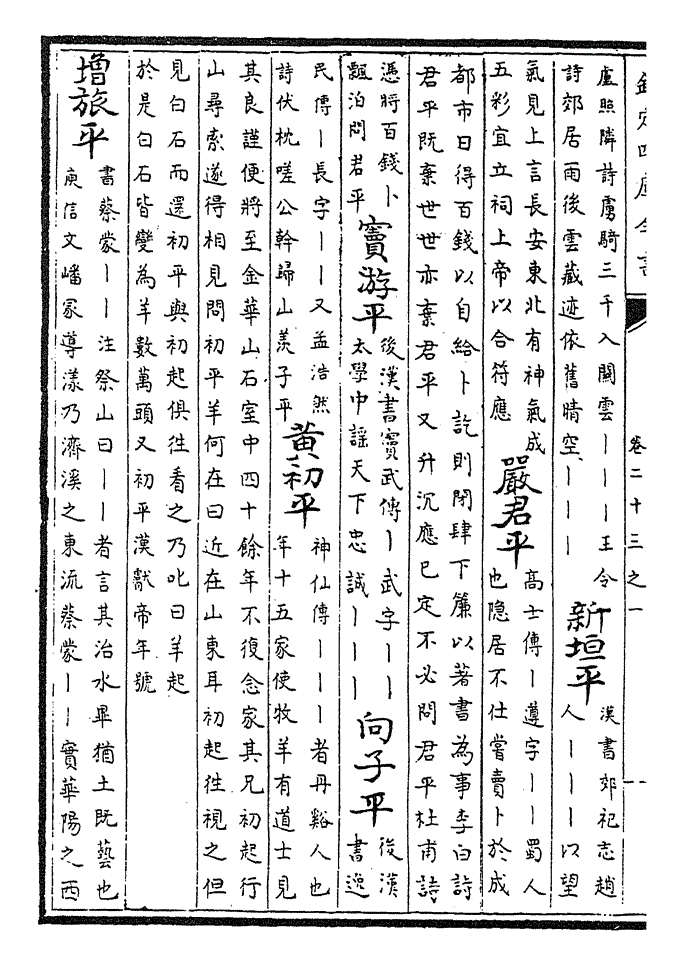 欽定四庫全書
卷二十三之一
盧照隣詩虜騎三千入關雲丨丨丨王令
詩郊居雨後雲藏迹依舊晴空丨丨丨
新垣平
漢書郊祀志趙
人丨丨丨以望
氣見上言長安東北有神氣成
五彩宜立祠上帝以合符應
嚴君平
高士傳丨遵字丨丨蜀人
也隐居不仕嘗賣卜於成
都市日得百錢以自給卜訖則閉肆下簾以著書為事李白詩
君平既棄世世亦棄君平又升沉應已定不必問君平杜甫詩
憑將百錢卜
飄泊問君平
竇游平
後漢書竇武傳丨武字丨丨
太學中謡天下忠誠丨丨丨
向子平
後漢
書逸
民傳丨長字丨丨又孟浩然
詩伏枕嗟公幹歸山羡子平
黄初平
神仙傳丨丨丨者丹谿人也
年十五家使牧羊有道士見
其良謹便將至金華山石室中四十餘年不復念家其兄初起行
山尋索遂得相見問初平羊何在曰近在山東耳初起徃視之但
見白石而還初平與初起俱徃看之乃叱曰羊起
於是白石皆變為羊數萬頭又初平漢獻帝年號
增旅平
書蔡蒙丨丨注祭山曰丨丨者言其治水畢猶土既藝也
庾信文嶓冢導漾乃濟溪之東流蔡蒙丨丨實華陽之西